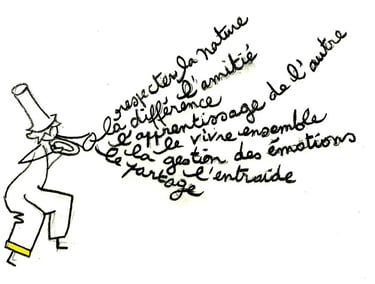 respecter la nature
la différence l'amitié
l'apprentissage de l'autre
le vivre ensemble
à la gestion des émotions
le partage l'entraide